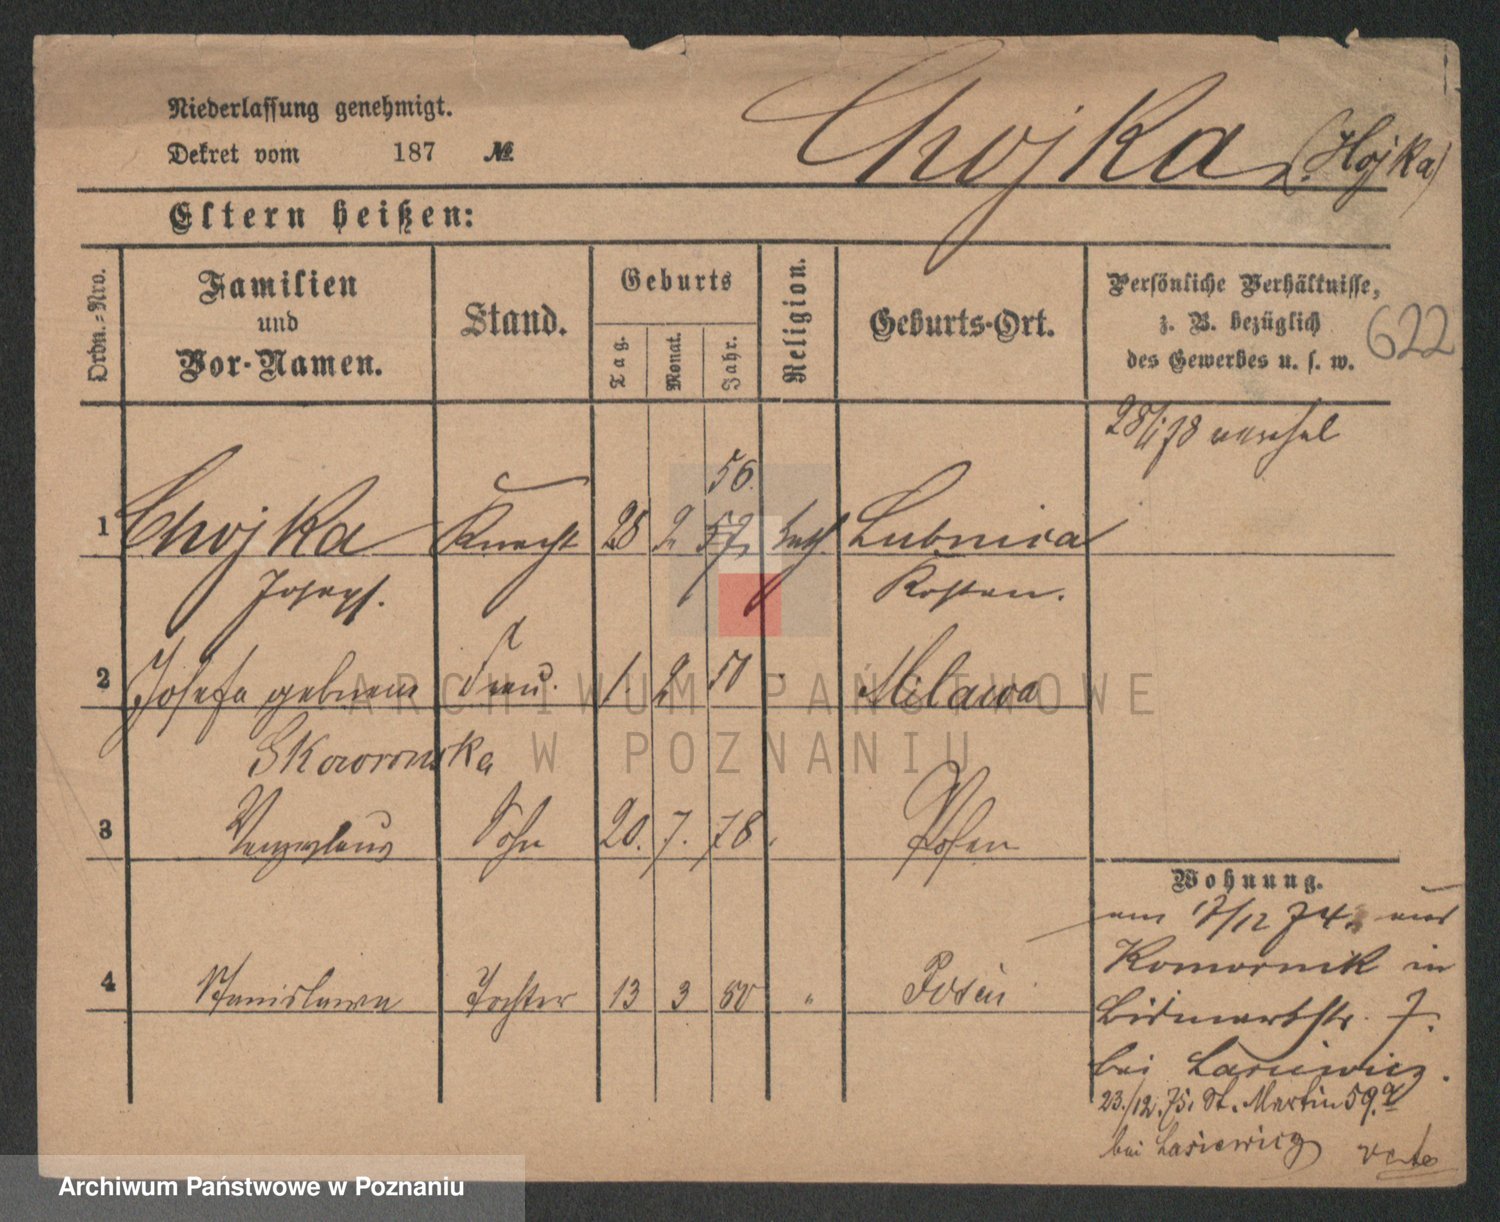 Niederlassung genehmigt.
Dekret vom 187 №
Chojka (Hojka)
Eltern heißen:
Ordn.-Nro.
Familien
und
Vor-Namen.
Stand.
Geburts
Tag.
Monat.
Jahr.
Religion.
Geburts-Ort.
Persönliche Verhältnisse,
z. B. bezüglich
des Gewerbes u. s. w.
622
28/1 78
56.
1 Chojka Knecht 28 2 57. kath. Lubnica
Joseph. Kosten.
2 Josefa geborene Frau. 1. 2 51 Milawa
Skoworonska
3 Wenzeslaus Sohn 20. 7. 78 Posen
Wohnung.
am 17/12 74. aus
Komornik in
4 Stanislawa Tochter 13 3 80 " Posen
Bismarkstr. 7.
bei Lasiewicz.
23./12.75. St. Martin 59.a
bei Lasiewicz verte
ARCHIWUM PAŃSTWOWE
W POZNANIU
Archiwum Państwowe w Poznaniu